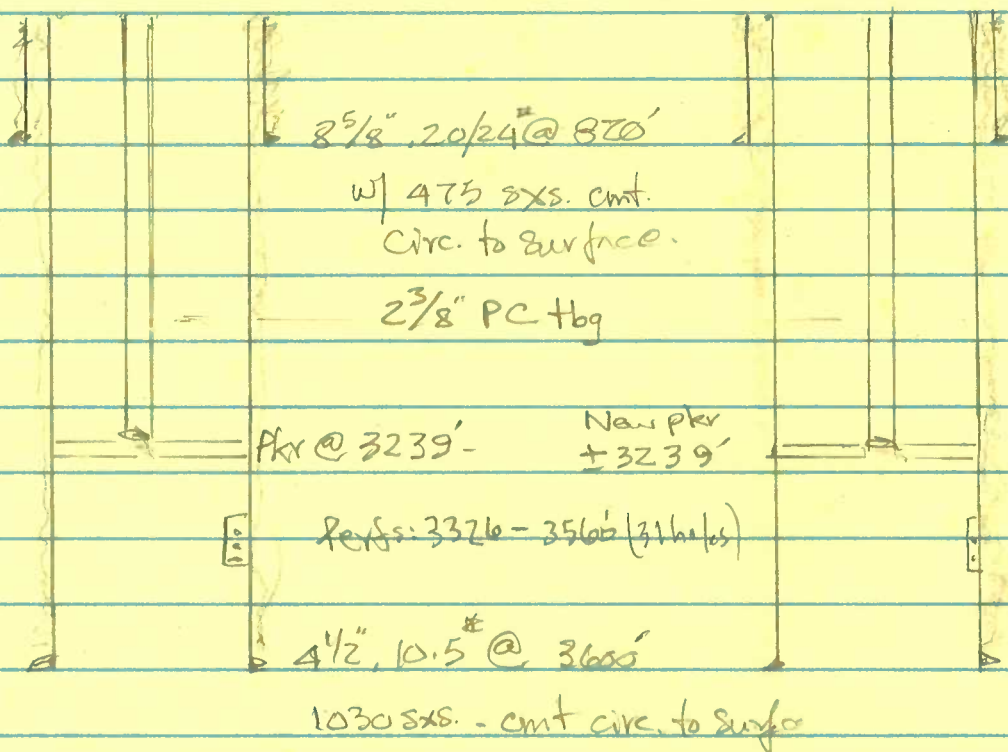 8 5/8", 20/24# @ 820'
w/ 475 sxs. cmt.
Circ. to surface.
2 3/8" PC tbg
Pkr @ 3239'-
New pkr
± 3239'
Perfs: 3326 - 3566' (31 holes)
4 1/2", 10.5# @ 3600'
1030 sxs. - cmt circ. to surfa